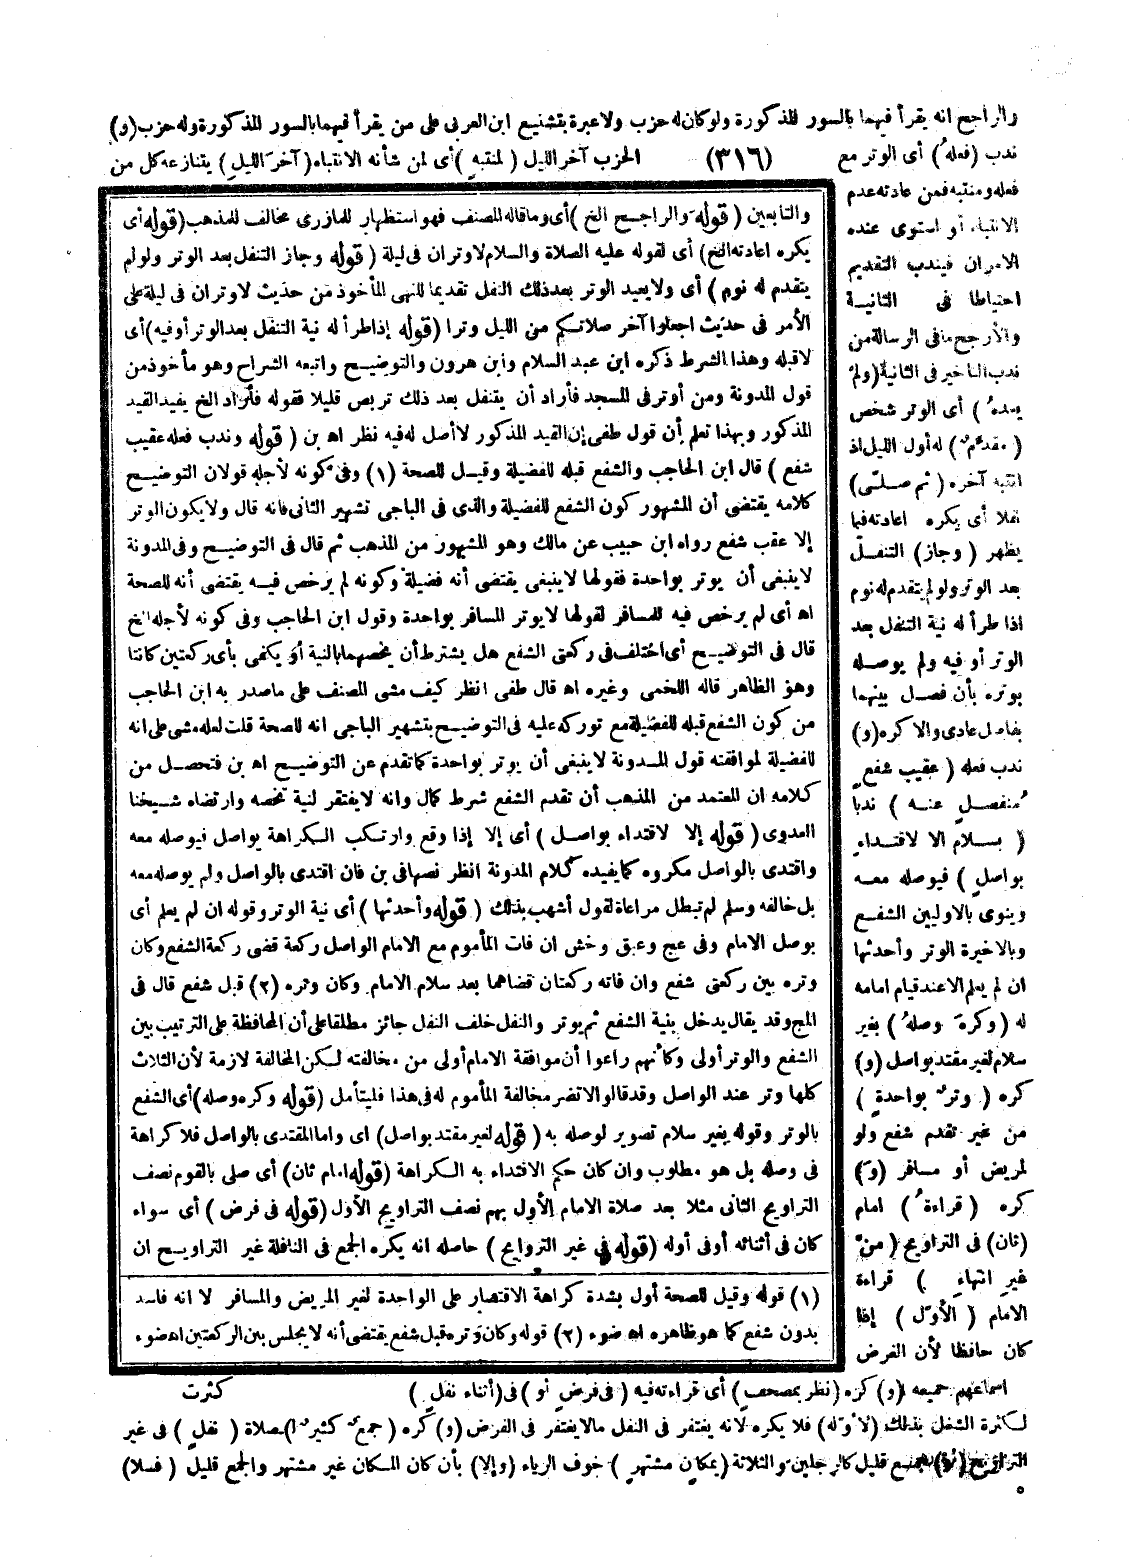 والراجح انه يقرأ فيهما بالسور المذكورة ولو كان له حزب ولا عبرة بتشنيع ابن العربى على من يقرأ فيهما بالسور المذكورة وله حزب (و)
ندب (فعله) أى الوتر مع (٣١٦) الحزب آخر الليل (لمنتبه) أى لمن شأنه الانتباه (آخر الليل) يتنازعه كل من
فعله ومنتبه فمن عادته عدم
الانتباه أو استوى عنده
الامران فيندب التقديم
احتياطا فى الثانية
والأرجح ما فى الرسالة من
ندب التأخير فى الثانية (ولم
يعده) أى الوتر شخص
(مقدم) له أول الليل اذ
انتبه آخره (ثم صلى)
نفلا أى يكره اعادته فيما
يظهر (وجاز) التنفل
بعد الوتر ولو لم يتقدم له نوم
اذا طرأ له نية التنفل بعد
الوتر أو فيه ولم يوصله
بوتره بأن فصل بينهما
بفاصل عادى والا كره (و)
ندب فعله (عقيب شفع
منفصل عنه) ندبا
(بسلام الا لاقتداء
بواصل) فيوصله معه
وينوى بالاوليين الشفع
وبالاخيرة الوتر وأحدثها
ان لم يعلم الا عند قيام امامه
له (وكره وصله) بغير
سلام لغير مقتد بواصل (و)
كره (وتر بواحدة)
من غير تقدم شفع ولو
لمريض أو مسافر (و)
كره (قراءة) امام
(ثان) فى التراويح (من
غير انتهاء) قراءة
الامام (الأول) إذا
كان حافظا لأن الغرض
والتابعين (قوله والراجح الخ) أى وما قاله المصنف فهو استظهار للمازرى مخالف للمذهب (قوله أى
يكره اعادته الخ) أى لقوله عليه الصلاة والسلام لا وتران فى ليلة (قوله وجاز التنفل بعد الوتر ولو لم
يتقدم له نوم) أى ولا يعيد الوتر بعد ذلك النفل تقديما للنهى المأخوذ من حديث لا وتران فى ليلة على
الأمر فى حديث اجعلوا آخر صلاتكم من الليل وترا (قوله إذا طرأ له نية التنفل بعد الوتر أو فيه) أى
لا قبله وهذا الشرط ذكره ابن عبد السلام وابن هرون والتوضيح واتبعه الشراح وهو مأخوذ من
قول المدونة ومن أوتر فى المسجد فأراد أن يتنفل بعد ذلك تربص قليلا فقوله فأراد الخ يفيد القيد
المذكور وبهذا تعلم أن قول طفى إن القيد المذكور لا أصل له فيه نظر اه بن (قوله وندب فعله عقيب
شفع) قال ابن الحاجب والشفع قبله للفضيلة وقيل للصحة (١) وفى كونه لأجله قولان التوضيح
كلامه يقتضى أن المشهور كون الشفع للفضيلة والذى فى الباجى تشهير الثانى فانه قال ولا يكون الوتر
إلا عقب شفع رواه ابن حبيب عن مالك وهو المشهور من المذهب ثم قال فى التوضيح وفى المدونة
لا ينبغى أن يوتر بواحدة فقولها لا ينبغى يقتضى أنه فضيلة وكونه لم يرخص فيه يقتضى أنه للصحة
اه أى لم يرخص فيه للمسافر لقولها لا يوتر المسافر بواحدة وقول ابن الحاجب وفى كونه لأجله الخ
قال فى التوضيح أى اختلف فى ركعتى الشفع هل يشترط أن يخصهما بالنية أو يكفى بأى ركعتين كانتا
وهو الظاهر قاله اللخمى وغيره اه قال طفى انظر كيف مشى المصنف على ما صدر به ابن الحاجب
من كون الشفع قبله للفضيلة مع توركه عليه فى التوضيح بتشهير الباجى انه للصحة قلت لعله مشى على انه
للفضيلة لموافقته قول المدونة لا ينبغى أن يوتر بواحدة كما تقدم عن التوضيح اه بن فتحصل من
كلامه ان المعتمد من المذهب أن تقدم الشفع شرط كمال وانه لا يفتقر لنية تخصه وارتضاه شيخنا
العدوى (قوله إلا لاقتداء بواصل) أى إلا إذا وقع وارتكب الكراهة بواصل فيوصله معه
واقتدى بالواصل مكروه كما يفيده كلام المدونة انظر نصها فى بن فان اقتدى بالواصل ولم يوصله معه
بل خالفه وسلم لم تبطل مراعاة لقول أشهب بذلك (قوله وأحدثها) أى نية الوتر وقوله ان لم يعلم أى
بوصل الامام وفى عج وعبق وخش ان فات المأموم مع الامام الواصل ركعة قضى ركعة الشفع وكان
وتره بين ركعتى شفع وان فاته ركعتان قضاهما بعد سلام الامام وكان وتره (٢) قبل شفع قال فى
المج وقد يقال يدخل بنية الشفع ثم يوتر والنفل خلف النفل جائز مطلقا على أن المحافظة على الترتيب بين
الشفع والوتر أولى وكأنهم راعوا أن موافقة الامام أولى من مخالفته لكن المخالفة لازمة لأن الثلاث
كلها وتر عند الواصل وقد قالوا لا تضر مخالفة المأموم له فى هذا فليتأمل (قوله وكره وصله) أى الشفع
بالوتر وقوله بغير سلام تصوير لوصله به (قوله لغير مقتد بواصل) اى واما المقتدى بالواصل فلا كراهة
فى وصله بل هو مطلوب وان كان حكم الاقتداء به الكراهة (قوله امام ثان) أى صلى بالقوم نصف
التراويح الثانى مثلا بعد صلاة الامام الأول بهم نصف التراويح الأول (قوله فى فرض) أى سواء
كان فى أثنائه أو فى أوله (قوله فى غير التروايح) حاصله انه يكره الجمع فى النافلة غير التراويح ان
(١) قوله وقيل للصحة أول بشدة كراهة الاقتصار على الواحدة لغير المريض والمسافر لا انه فاسد
بدون شفع كما هو ظاهره اه ضوء (٢) قوله وكان وتره قبل شفع يقتضى أنه لا يجلس بين الركعتين اه ضوء
اسماعهم جميعه (و) كره (نظر بمصحف) أى قراءته فيه (فى فرض أو) فى (أثناء نفل) كثرت
لكثرة الشغل بذلك (لا أوله) فلا يكره لانه يغتفر فى النفل مالا يغتفر فى الفرض (و) كره (جمع كثير ا) صلاة (نفل) فى غير
التراويح (أو) جمع قليل كالرجلين والثلاثة (بمكان مشتهر) خوف الرياء (وإلا) بأن كان المكان غير مشتهر والجمع قليل (فلا)